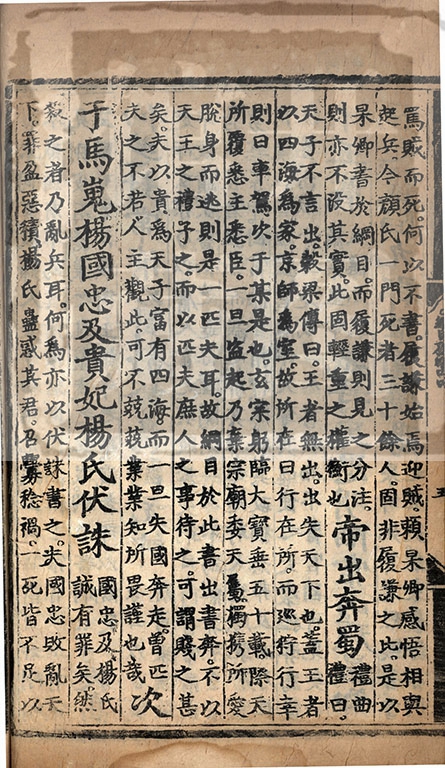 罵賊而死。何以不書。履謙始焉迎賊。頼杲卿感悟相與
起兵。今顔氏一門死者三十餘人。固非履謙之比。是以
杲卿書於綱目。而履謙則見之分注。
則亦不没其實。此固輕重之權衡也
帝出奔蜀
禮曲
禮曰。
天子不言出。穀梁傳曰。王者無出。出失天下也。葢王者
以四海爲家。京師爲室。故所在曰行在所。而廵狩行幸
則曰車駕次于某是也。玄宗躬臨大寶垂五十載。際天
所覆悉主悉臣。一旦盗起乃棄宗廟委天屬獨携所愛
脫身而逃則是一匹夫耳。故綱目於此書出書奔。不以
天王之禮予之。而以匹夫庶人之事待之。可謂賤之甚
矣。夫以貴爲天子富有四海。而一旦失國奔走。曽匹
夫之不若。人主觀此。可不兢兢業業知所畏謹也哉
次
于馬嵬楊國忠及貴妃楊氏伏誅
國忠及楊氏
誠有罪矣。然
殺之者乃亂兵耳。何爲亦以伏誅書之。夫國忠敗亂天
下。罪盈惡積。楊氏蠱惑其君。召釁稔禍。一死皆不足以